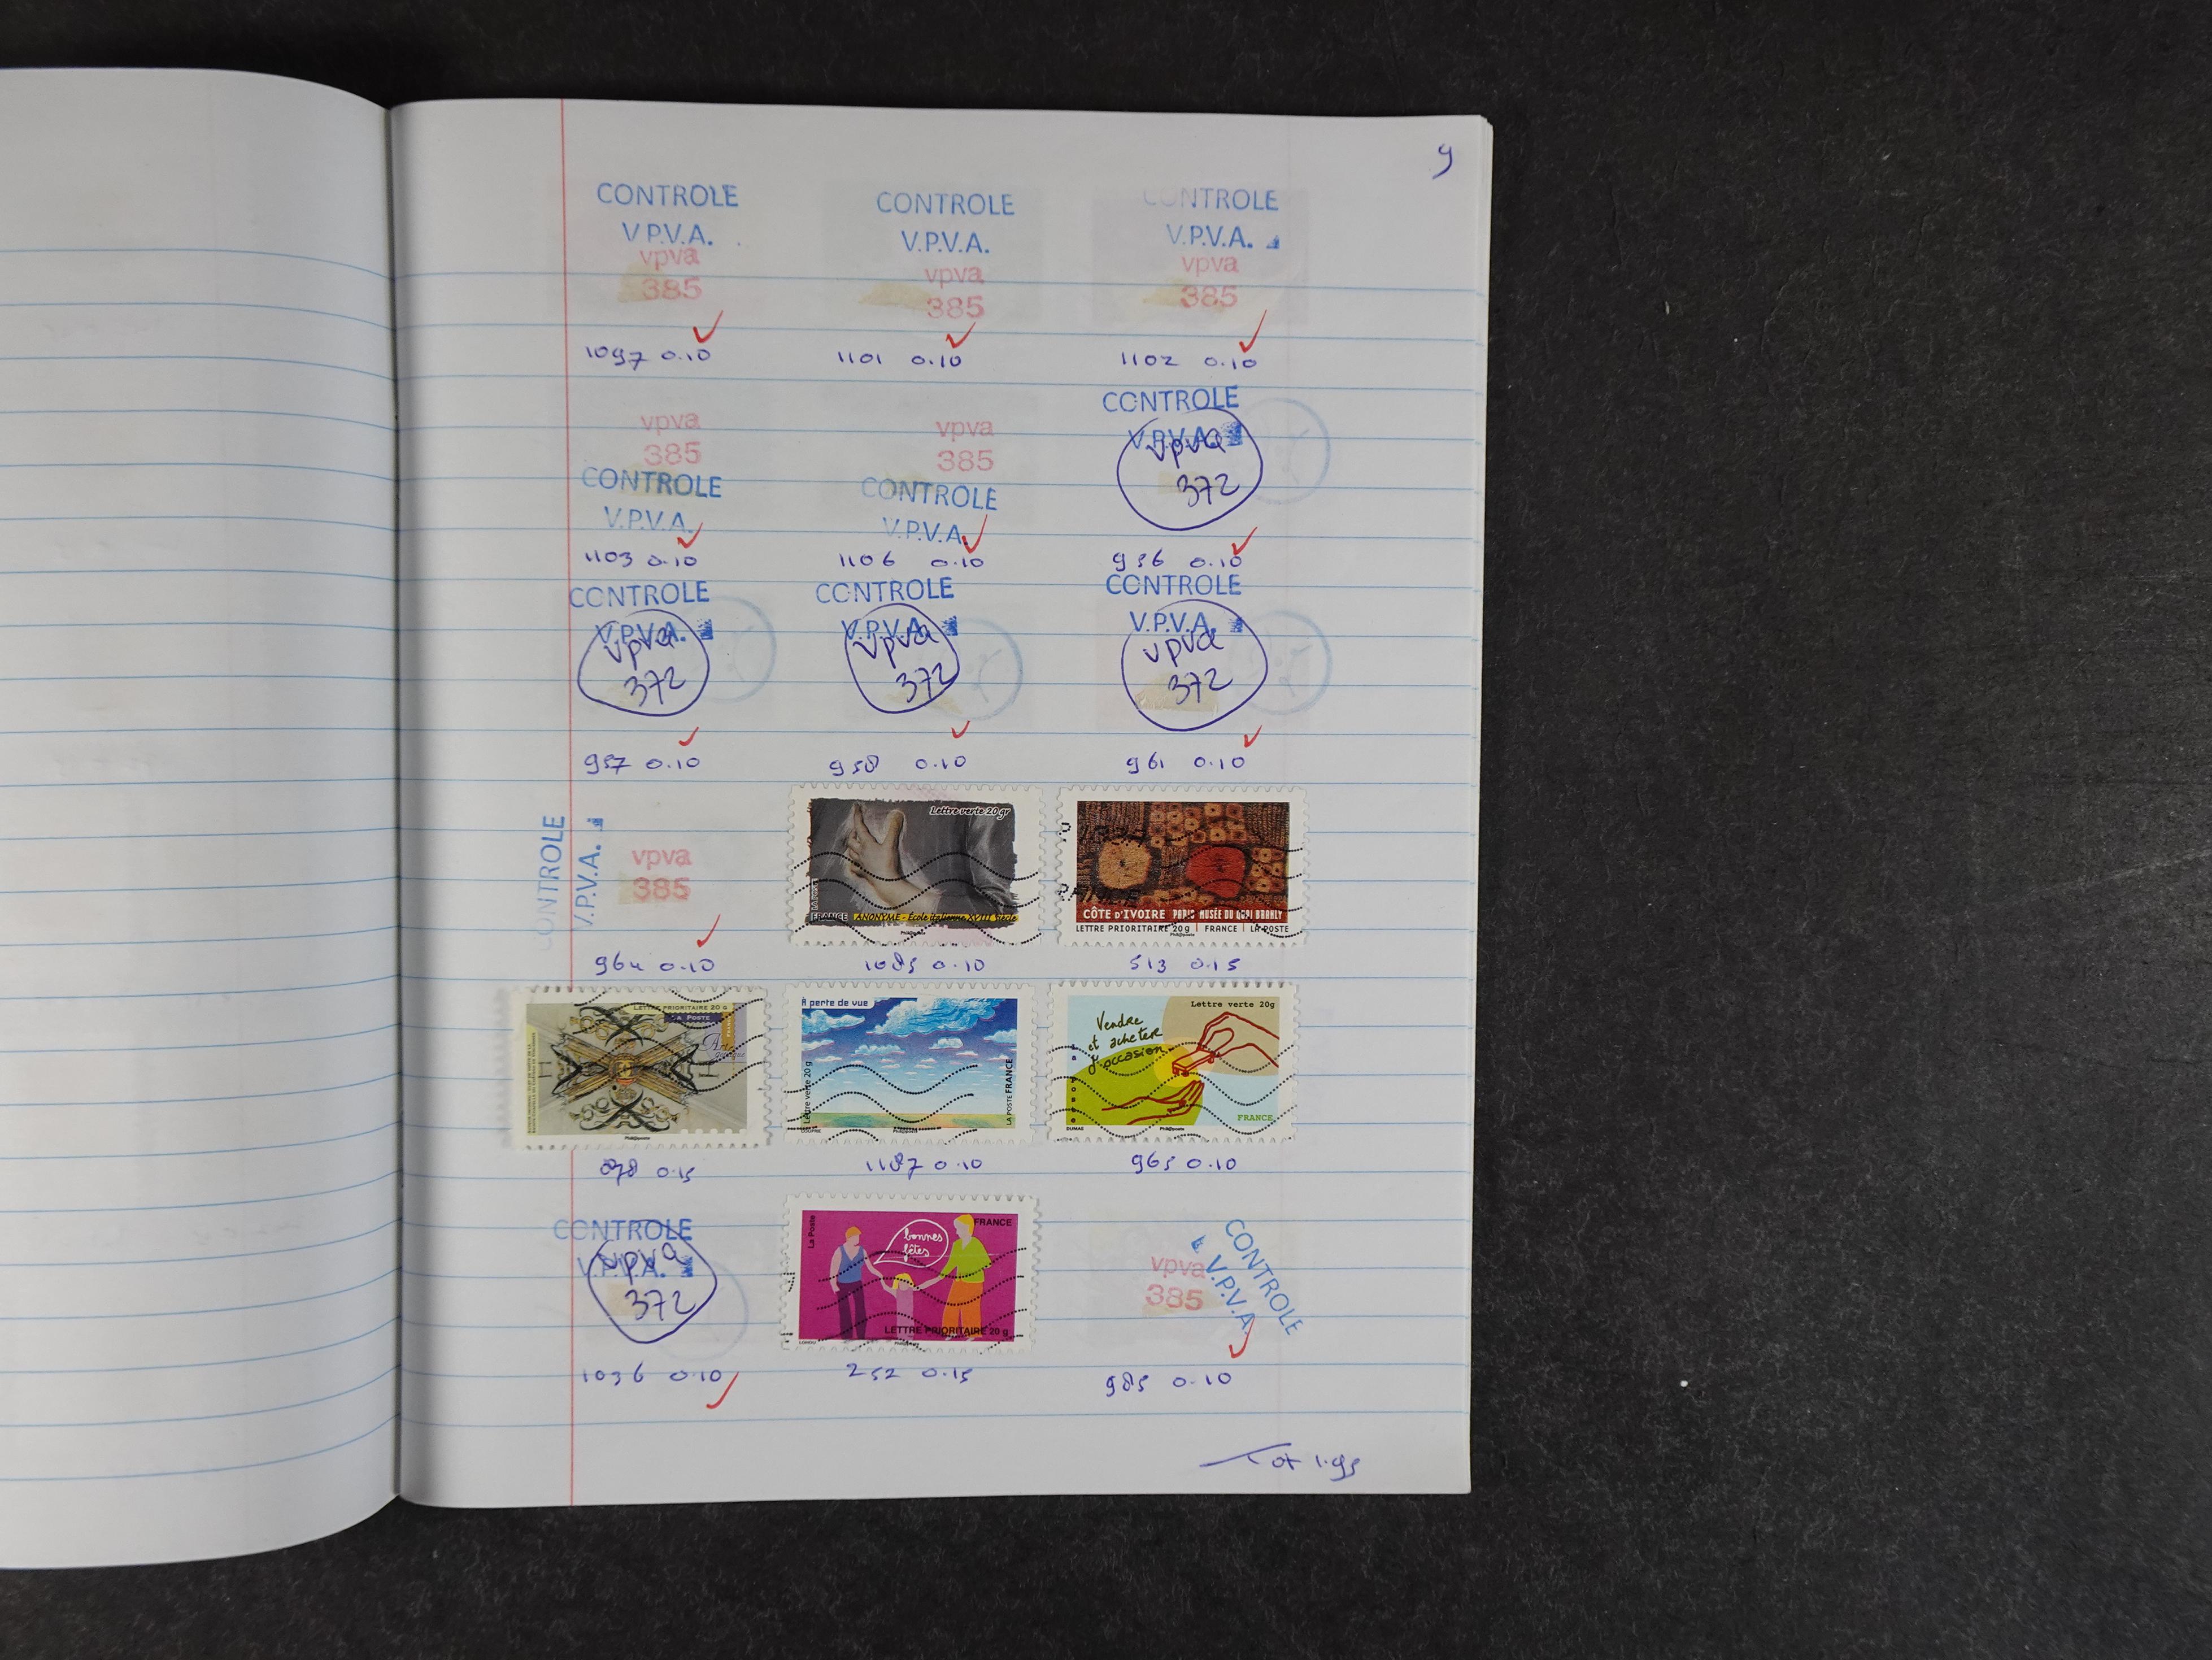 9
CONTROLE
V.P.V.A.
vpva
385
1097 0.10
CONTROLE
V.P.V.A.
vpva
385
1101 0.10
CONTROLE
V.P.V.A.
vpva
385
1102 0.10
vpva
385
CONTROLE
V.P.V.A.
1103 0.10
vpva
385
CONTROLE
V.P.V.A.
1106 0.10
CONTROLE
V.P.V.A.
vpva
372
956 0.10
CONTROLE
V.P.V.A.
vpva
372
957 0.10
CONTROLE
V.P.V.A.
vpva
372
958 0.10
CONTROLE
V.P.V.A.
vpva
372
961 0.10
CONTROLE
V.P.V.A.
vpva
385
964 0.10
Lettre verte 20 gr
FRANCE
ANONYME - École italienne XVIII Siècle
Phil@poste
1085 0.10
CÔTE D'IVOIRE PARIS MUSÉE DU QUAI BRANLY
LETTRE PRIORITAIRE 20 g FRANCE LA POSTE
Phil@poste
513 0.15
LETTRE PRIORITAIRE 20 g
LA POSTE
Phil@poste
878 0.15
À perte de vue
Lettre verte 20 g
LA POSTE FRANCE
Phil@poste
1187 0.10
Lettre verte 20g
Vendre
et acheter
d'occasion
La Poste
FRANCE
DUMAS
Phil@poste
965 0.10
CONTROLE
V.P.V.A.
vpva
372
1036 0.10
La Poste
FRANCE
bonnes
fêtes
LETTRE PRIORITAIRE 20 g
252 0.15
CONTROLE
V.P.V.A.
vpva
385
985 0.10
Tot 1.95